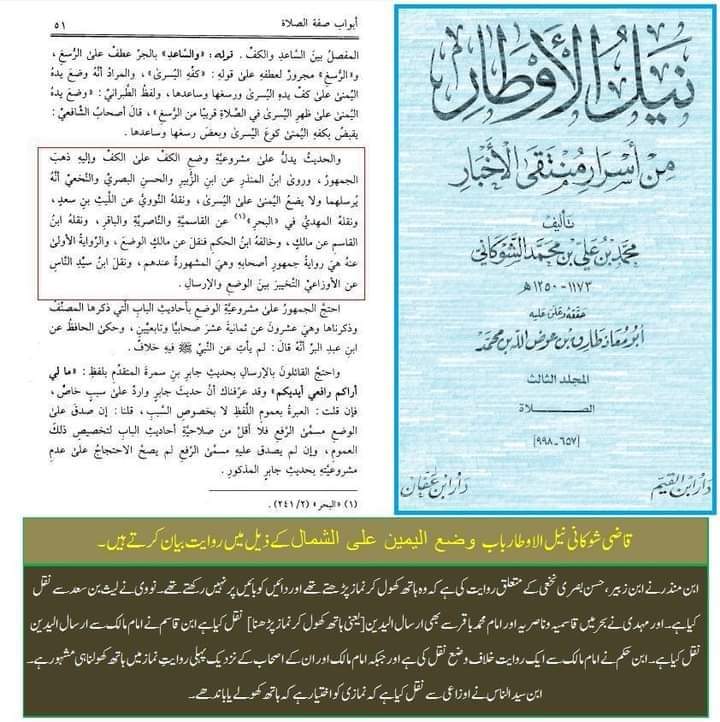 أبواب صفة الصلاة
٥١
المفصل بينَ السَّاعدِ والكفِّ. قوله: «والسَّاعدِ» بالجرِّ عطفٌ علىٰ الرُّسغِ،
و«الرُّسغِ» مجرورٌ لعطفهِ علىٰ قولهِ: «كفِّه اليُسرىٰ»، والمرادُ أنَّهُ وضعَ يدهُ
اليُمنىٰ علىٰ كفِّ يدهِ اليُسرىٰ ورسغِها وساعدِها، ولفظُ الطَّبرانيِّ: «وضعَ يدهُ
اليُمنىٰ علىٰ ظهرِ اليُسرىٰ في الصَّلاةِ قريبًا من الرُّسغِ»، قالَ أصحابُ الشَّافعيِّ:
يقبضُ بكفِّهِ اليُمنىٰ كوعَ اليُسرىٰ وبعضَ رسغِها وساعدِها.
والحديثُ يدلُّ علىٰ مشروعيَّةِ وضعِ الكفِّ علىٰ الكفِّ وإليهِ ذهبَ
الجمهورُ، وروىٰ ابنُ المنذرِ عن ابنِ الزُّبيرِ والحسنِ البصريِّ والنَّخعيِّ أنَّهُ
يُرسلهما ولا يضعُ اليُمنىٰ علىٰ اليُسرىٰ، ونقلهُ النَّوويُّ عن اللَّيثِ بنِ سعدٍ،
ونقلهُ المهديُّ في «البحرِ»(١) عن القاسميَّةِ والنَّاصريَّةِ والباقرِ، ونقلهُ ابنُ
القاسمِ عن مالكٍ، وخالفهُ ابنُ الحكمِ فنقلَ عن مالكٍ الوضعَ، والرِّوايةُ الأولىٰ
عنهُ هيَ روايةُ جمهورِ أصحابهِ وهيَ المشهورةُ عندهم، ونقلَ ابنُ سيِّدِ النَّاسِ
عن الأوزاعيِّ التَّخييرَ بينَ الوضعِ والإرسالِ.
احتجَّ الجمهورُ علىٰ مشروعيَّةِ الوضعِ بأحاديثِ البابِ الَّتي ذكرها المصنِّفُ
وذكرناها وهيَ عشرونَ عن ثمانيةَ عشرَ صحابيًّا وتابعيَّينِ، وحكىٰ الحافظُ عن
ابنِ عبدِ البرِّ أنَّهُ قالَ: لم يأتِ عن النَّبيِّ ﷺ فيهِ خلافٌ.
واحتجَّ القائلونَ بالإرسالِ بحديثِ جابرِ بنِ سمرةَ المتقدِّمِ بلفظِ: «ما لي
أراكم رافعي أيديكم» وقد عرَّفناكَ أنَّ حديثَ جابرٍ واردٌ علىٰ سببٍ خاصٍّ،
فإن قلتَ: العبرةُ بعمومِ اللَّفظِ لا بخصوصِ السَّببِ، قلنا: إن صدقَ علىٰ
الوضعِ مسمَّىٰ الرَّفعِ فلا أقلَّ من صلاحيَّةِ أحاديثِ البابِ لتخصيصِ ذلكَ
العمومِ، وإن لم يصدق عليهِ مسمَّىٰ الرَّفعِ لم يصحَّ الاحتجاجُ علىٰ عدمِ
مشروعيَّتهِ بحديثِ جابرٍ المذكورِ.
(١) «البحر» (٢٤١/٢).
نيل الأوطار
من أسرار منتقى الأخبار
تأليف
محمد بن علي بن محمد الشوكاني
١١٧٣ - ١٢٥٠ هـ
حققه وعلق عليه
أبو معاذ طارق بن عوض الله بن محمد
المجلد الثالث
الصلاة
[٦٥٧ - ٩٩٨]
دار ابن القيم
دار ابن عفان
قاضی شوکانی نیل الاوطار باب وضع اليمين على الشمال کے ذیل میں روایت بیان کرتے ہیں۔
ابن منذر نے ابن زبیر، حسن بصری نخعی کے متعلق روایت کی ہے کہ وہ ہاتھ کھول کر نماز پڑھتے تھے اور دائیں کو بائیں پر نہیں رکھتے تھے۔ نووی نے لیث بن سعد سے نقل
کیا ہے۔ اور مہدی نے بحر میں قاسمیہ و ناصریہ اور امام محمد باقر سے بھی ارسال الیدین [یعنی ہاتھ کھول کر نماز پڑھنا] نقل کیا ہے ابن قاسم نے امام مالک سے ارسال الیدین
نقل کیا ہے۔ ابن حکم نے امام مالک سے ایک روایت خلاف وضع نقل کی ہے اور جبکہ امام مالک اور ان کے اصحاب کے نزدیک پہلی روایت نماز میں ہاتھ کھولنا ہی مشہور ہے۔
ابن سید الناس نے اوزاعی سے نقل کیا ہے کہ نمازی کو اختیار ہے کہ ہاتھ کھولے یا باندھے۔